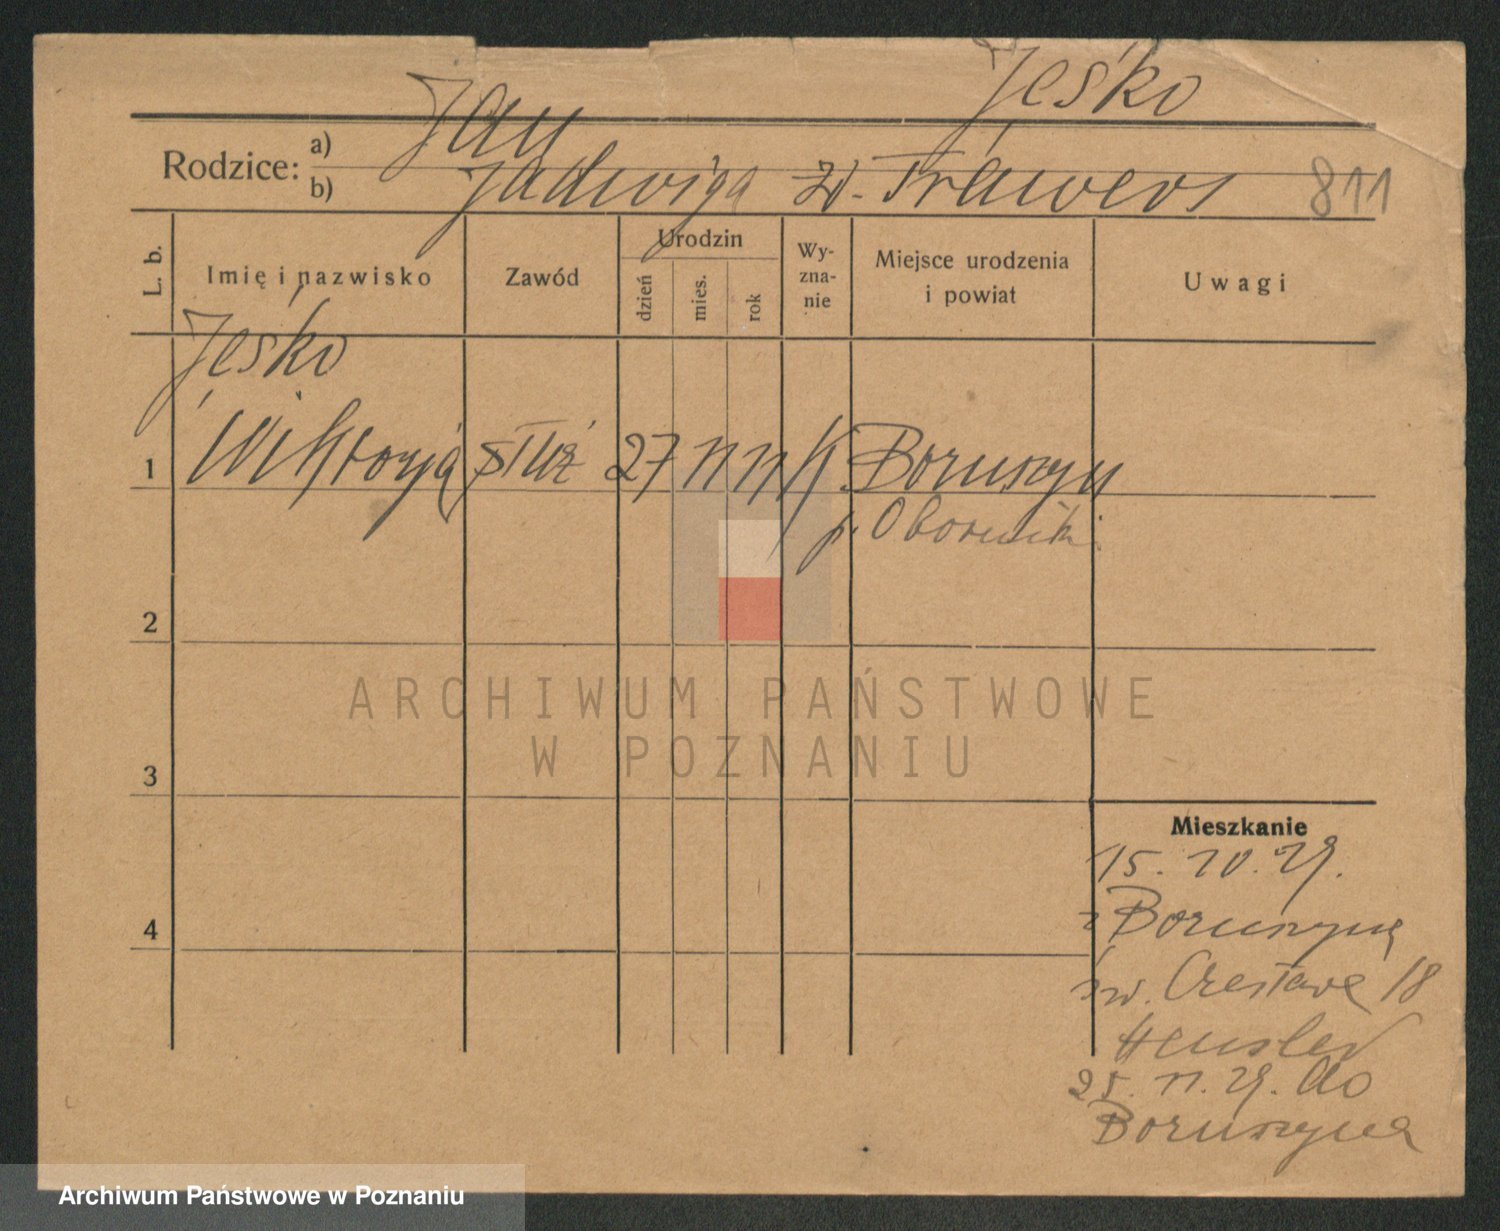 Jeśko
Rodzice: a) Jan
b) Jadwiga zd. 811
L. b. Imię i nazwisko Zawód Urodzin dzień mies. rok Wy-zna-nie Miejsce urodzenia i powiat Uwagi
Jeśko
1 Wiktorja służ 27 11 11 k. Boruszyn
p. Oborniki
2
ARCHIWUM PAŃSTWOWE
W POZNANIU
3
Mieszkanie
15. 10. 29.
z Boruszyna
4
św. Czesława 18
Hensler
25. 11. 29. do
Boruszyna
Archiwum Państwowe w Poznaniu